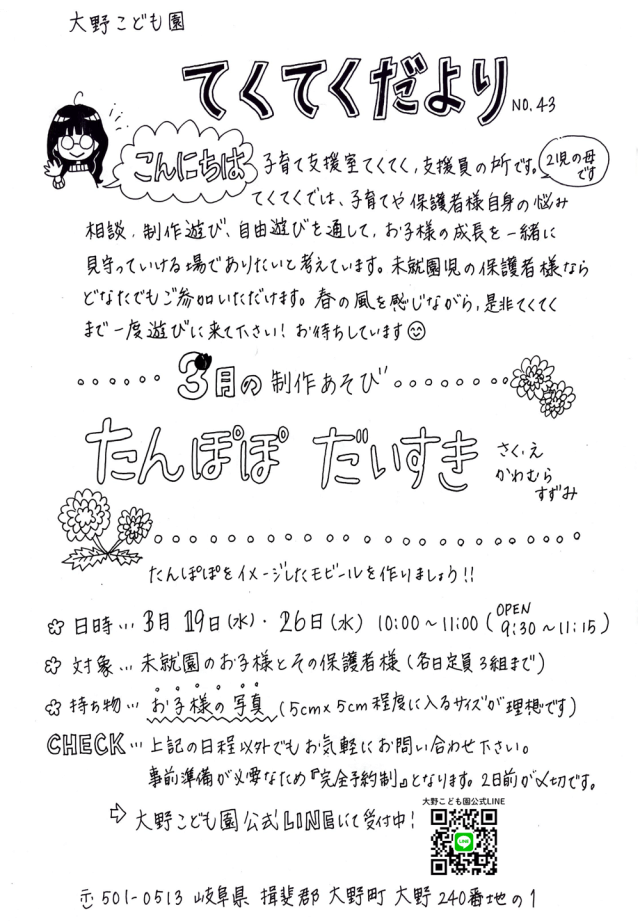 大野こども園
てくてくだより NO.43
こんにちは 子育て支援室てくてく、支援員の所です。 2児の母です
てくてくでは、子育てや保護者様自身の悩み
相談、制作遊び、自由遊びを通して、お子様の成長を一緒に
見守っていける場でありたいと考えています。未就園児の保護者様なら
どなたでもご参加いただけます。春の風を感じながら、是非てくてく
まで一度遊びに来て下さい！お待ちしています
3月の制作あそび
たんぽぽ だいすき
さく、え
かわむら
すずみ
たんぽぽをイメージしたモビールを作りましょう!!
日時…3月19日(水)・26日(水) 10:00～11:00 (OPEN 9:30～11:15)
対象…未就園のお子様とその保護者様(各日定員3組まで)
持ち物…お子様の写真(5cm×5cm程度に入るサイズが理想です)
CHECK…上記の日程以外でもお気軽にお問い合わせ下さい。
事前準備が必要なため『完全予約制』となります。2日前が〆切です。
大野こども園公式LINE
⇨ 大野こども園公式LINEにて受付中！
LINE
〒501-0513 岐阜県 揖斐郡 大野町 大野240番地の1